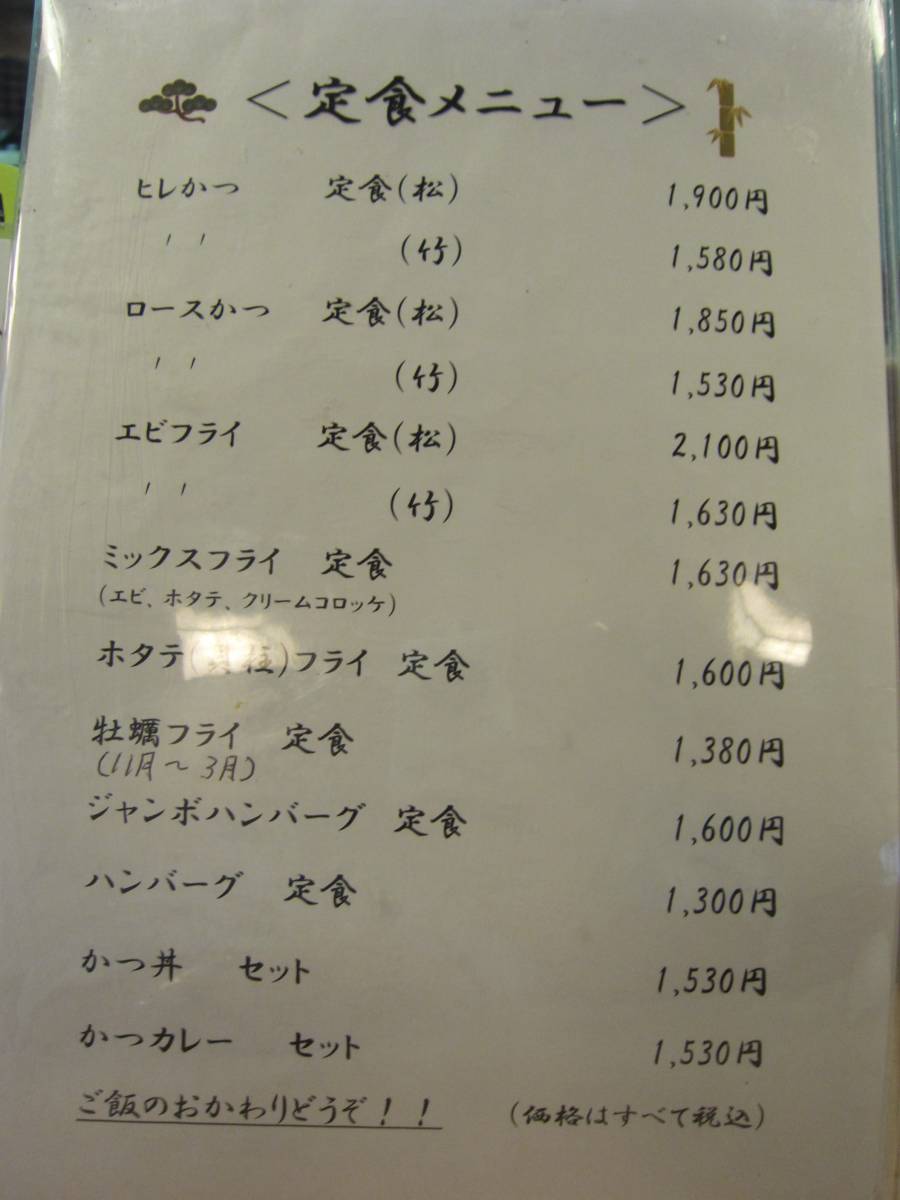 <定食メニュー>
ヒレかつ 定食(松) 1,900円
〃 (竹) 1,580円
ロースかつ 定食(松) 1,850円
〃 (竹) 1,530円
エビフライ 定食(松) 2,100円
〃 (竹) 1,630円
ミックスフライ 定食 1,630円
(エビ、ホタテ、クリームコロッケ)
ホタテ(貝柱)フライ 定食 1,600円
牡蠣フライ 定食 1,380円
(11月～3月)
ジャンボハンバーグ 定食 1,600円
ハンバーグ 定食 1,300円
かつ丼 セット 1,530円
かつカレー セット 1,530円
ご飯のおかわりどうぞ！！ (価格はすべて税込)